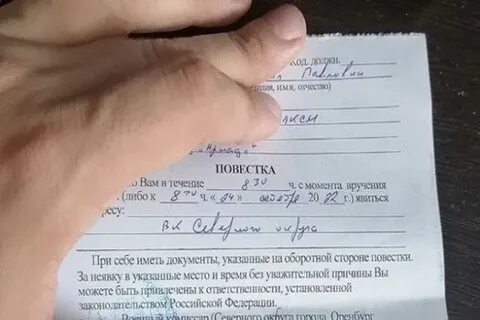 Код. должн.
Павлович
имя, отчество)
ЛКСМ
ПОВЕСТКА
Вам в течение 8 30 ч. с момента вручения
(либо к 8 30 ч. « 04 » октября 20 22 г.) явиться
ВК Северного округа
При себе иметь документы, указанные на оборотной стороне повестки.
За неявку в указанные место и время без уважительной причины Вы
можете быть привлечены к ответственности, установленной
законодательством Российской Федерации.
Военный комиссар (Северного округа города, Оренбург